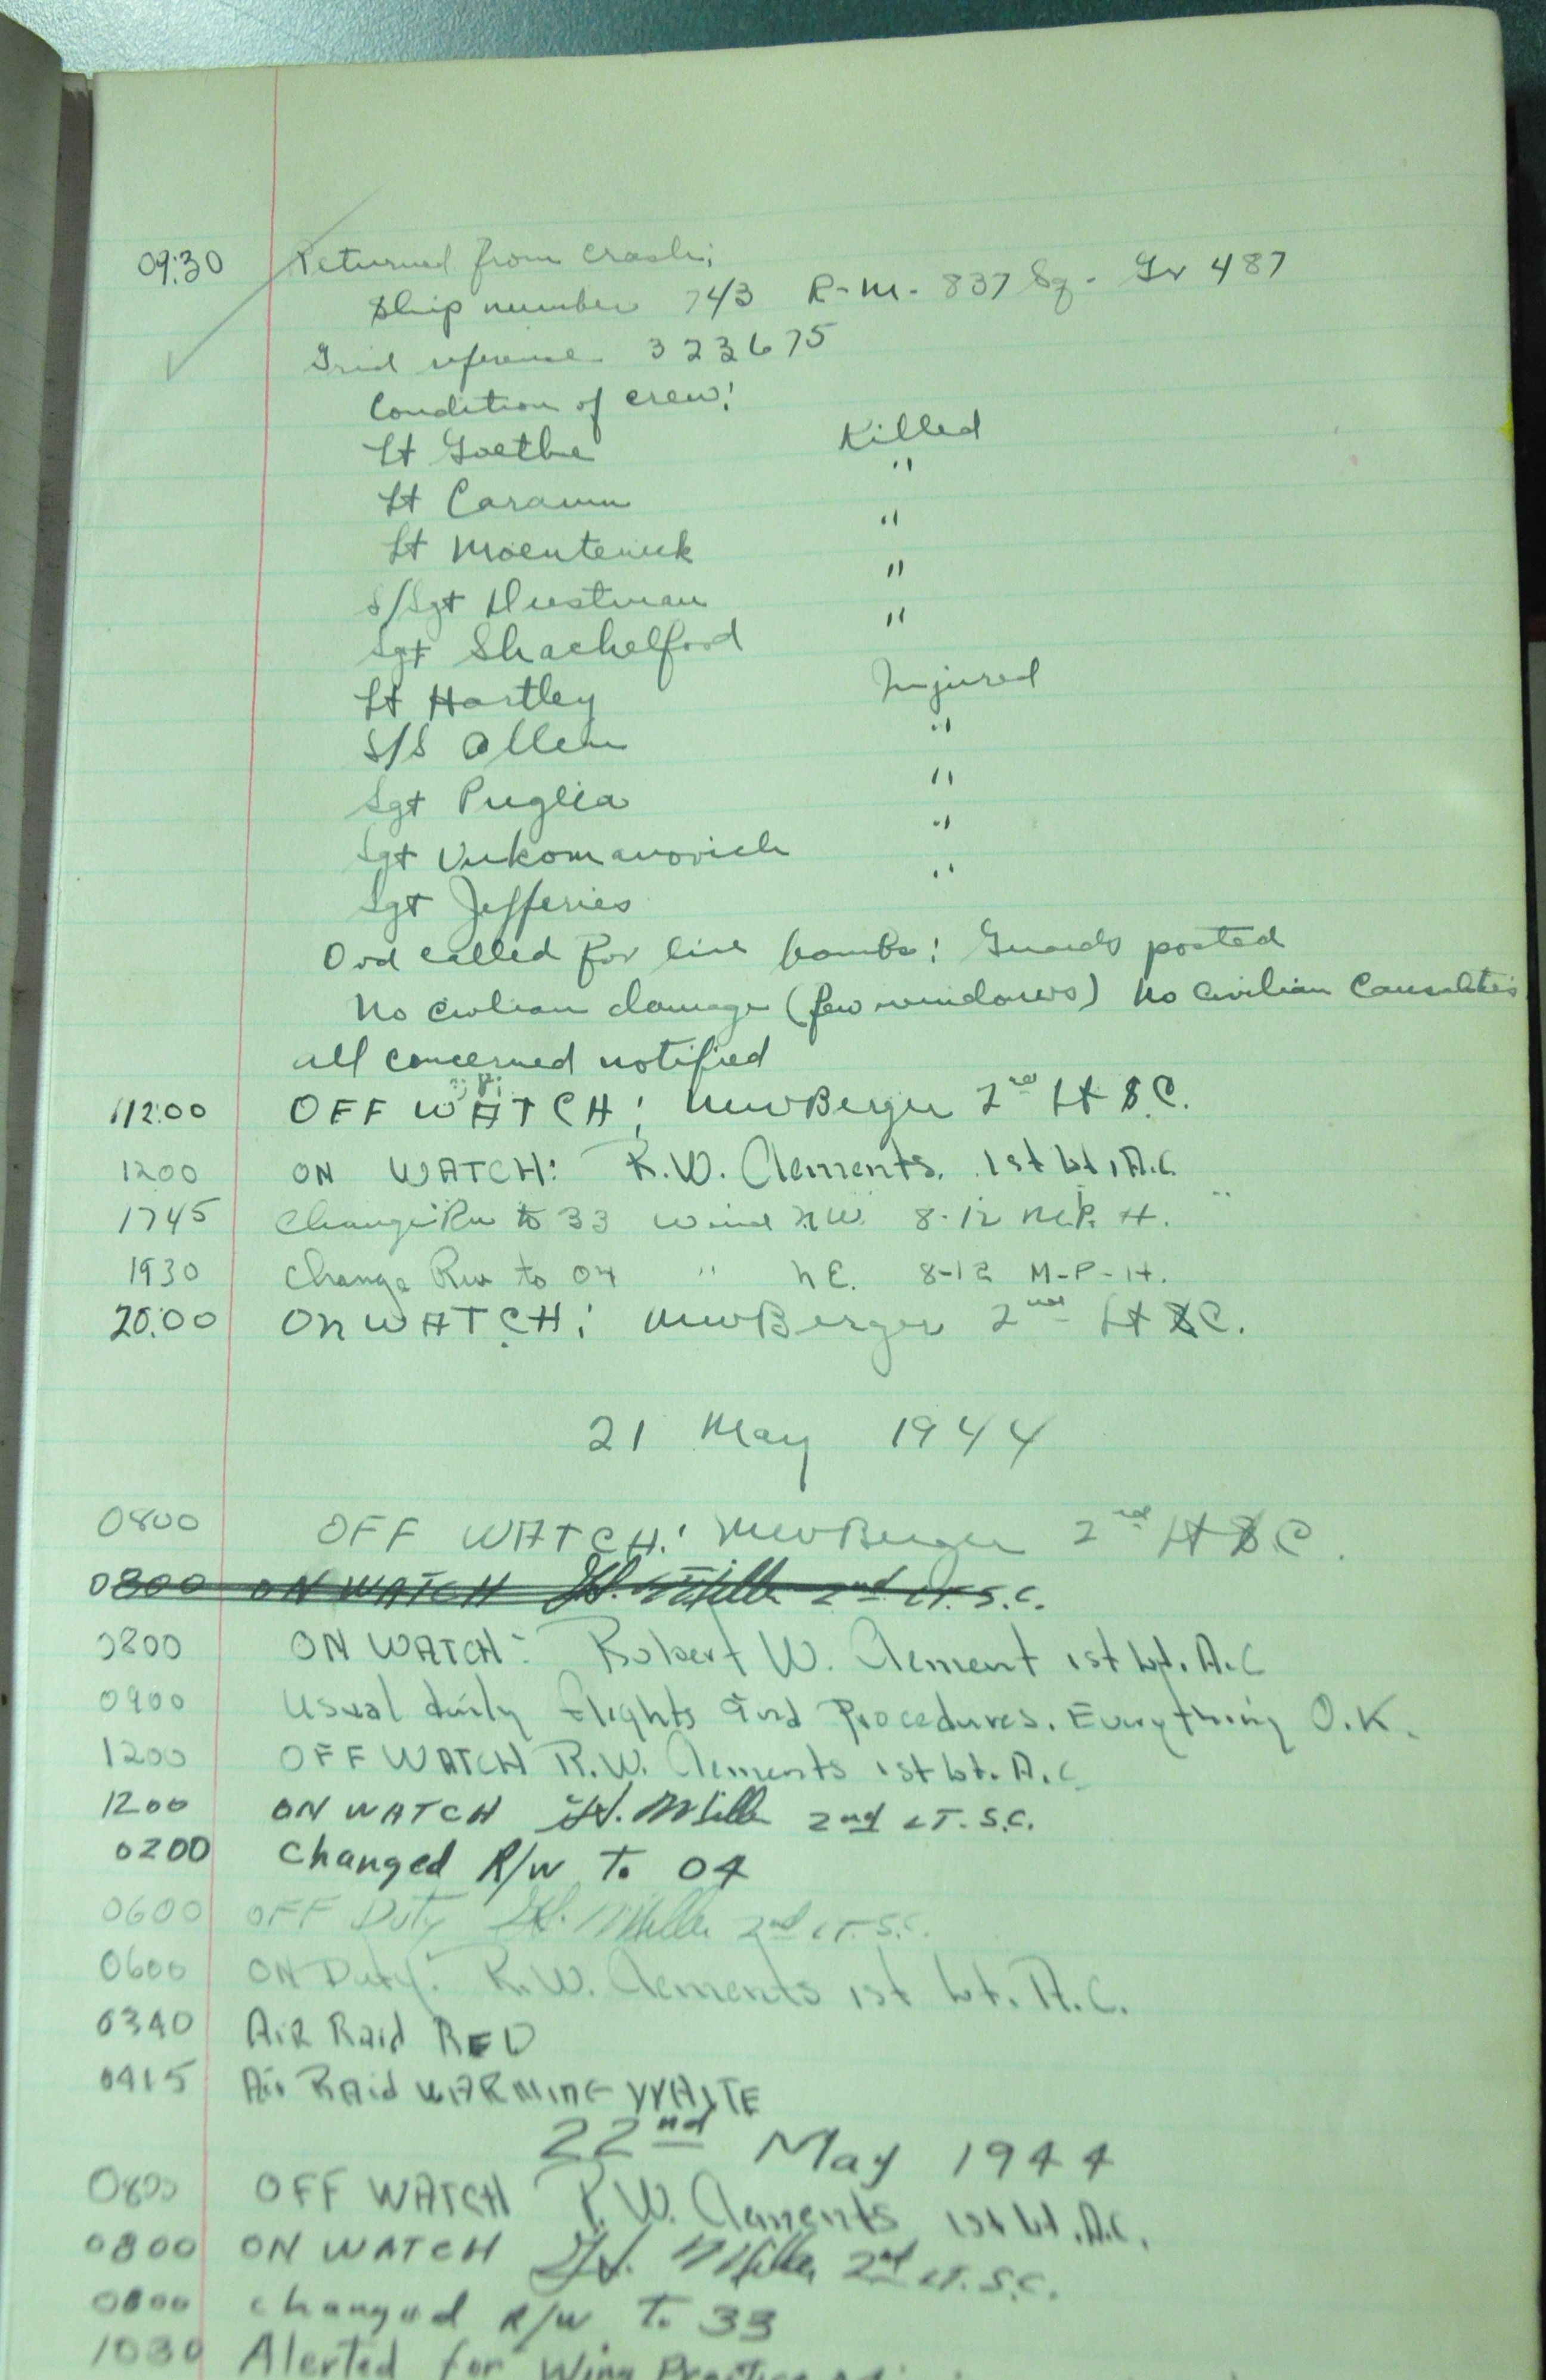 09:30 Returned from crash:
Ship number 743 R-M- 837 Sq - Gr 487
Grid reference 323675
Condition of crew:
Lt Goethe Killed
Lt "
Lt "
S/Sgt Dustman "
Sgt Shachelford "
Lt Hartley Injured
S/S Allen "
Sgt Puglia "
Sgt Vukomanovich "
Sgt Jefferies "
Ord called for live bombs: Guards posted
No civilian damage (few windows) No civilian
all concerned notified
1200 OFF WATCH: NewBerger 2nd Lt S.C.
1200 ON WATCH: R.W. Clements. 1st Lt, A.C.
1745 Change Rw to 33 Wind N.W. 8-12 M.P.H.
1930 Change Rw to 04 " N.E. 8-12 M-P-H.
20:00 ON WATCH: NewBerger 2nd Lt S.C.
21 May 1944
0800 OFF WATCH: NewBerger 2nd Lt S.C.
0800 ON WATCH Miller 2nd LT. S.C.
0800 ON WATCH: Robert W. Clement 1st Lt. A.C
0900 Usual daily flights and Procedures. Everything O.K.
1200 OFF WATCH R.W. Clements 1st Lt. A.C
1200 ON WATCH Miller 2nd LT. S.C.
0200 Changed R/W To 04
0600 OFF Duty Miller 2nd LT. S.C.
0600 ON Duty: R.W. Clements 1st Lt. A.C.
0340 AiR Raid RED
0415 Air RAid WARNING WHITE
22nd May 1944
0800 OFF WATCH R.W. Clements 1st Lt. A.C.
0800 ON WATCH Miller 2nd LT. S.C.
0800 changed R/W To 33
1030 Alerted for Wing